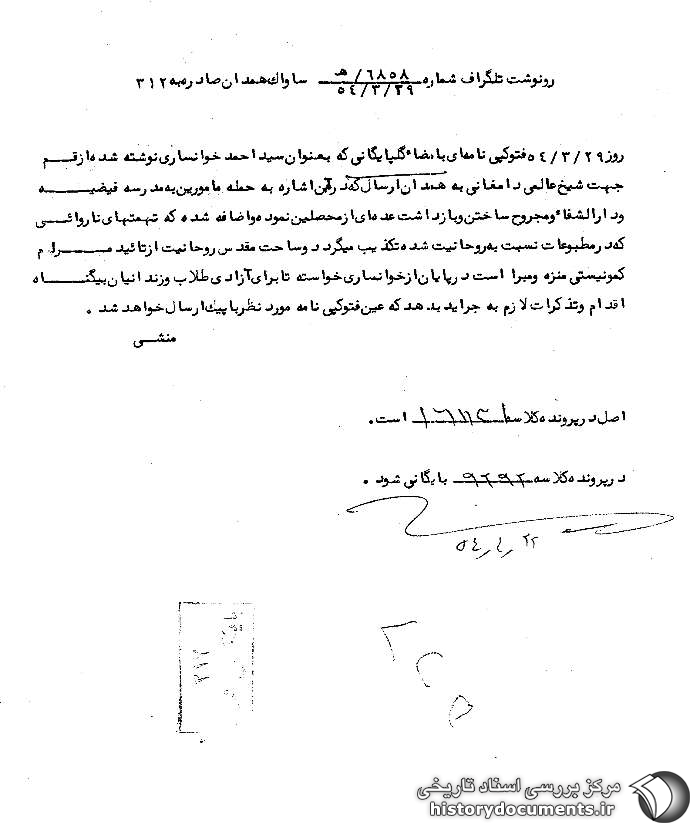 رونوشت تلگراف شماره ۶۸۵۸/هـ ۵۴/۳/۲۹ ساواک همدان صادره به ۳۱۲
روز ۵۴/۳/۲۹ فتوکپی نامه‌ای با مضاء گلپایگانی که بعنوان سید احمد خوانساری نوشته شده از قم
جهت شیخ عالمی دامغانی به همدان ارسال که در آن اشاره به حمله مامورین به مدرسه فیضیه
و دارالشفاء و مجروح ساختن و بازداشت عده‌ای از محصلین نموده و اضافه شده که تهمتهای ناروائی
که در مطبوعات نسبت به روحانیت شده تکذیب میگردد و ساحت مقدس روحانیت از تائید مرام
کمونیستی منزه و مبرا است در پایان از خوانساری خواسته تا برای آزادی طلاب و زندانیان بیگناه
اقدام و تذکرات لازم به جراید بدهد که عین فتوکپی نامه مورد نظر با پیک ارسال خواهد شد .
منشی
اصل در پرونده کلاسه است .
در پرونده کلاسه ۹۶۹۲ بایگانی شود .
۵۴/۴/۲۲
۳۱۲
مرکز بررسی اسناد تاریخی
historydocuments.ir